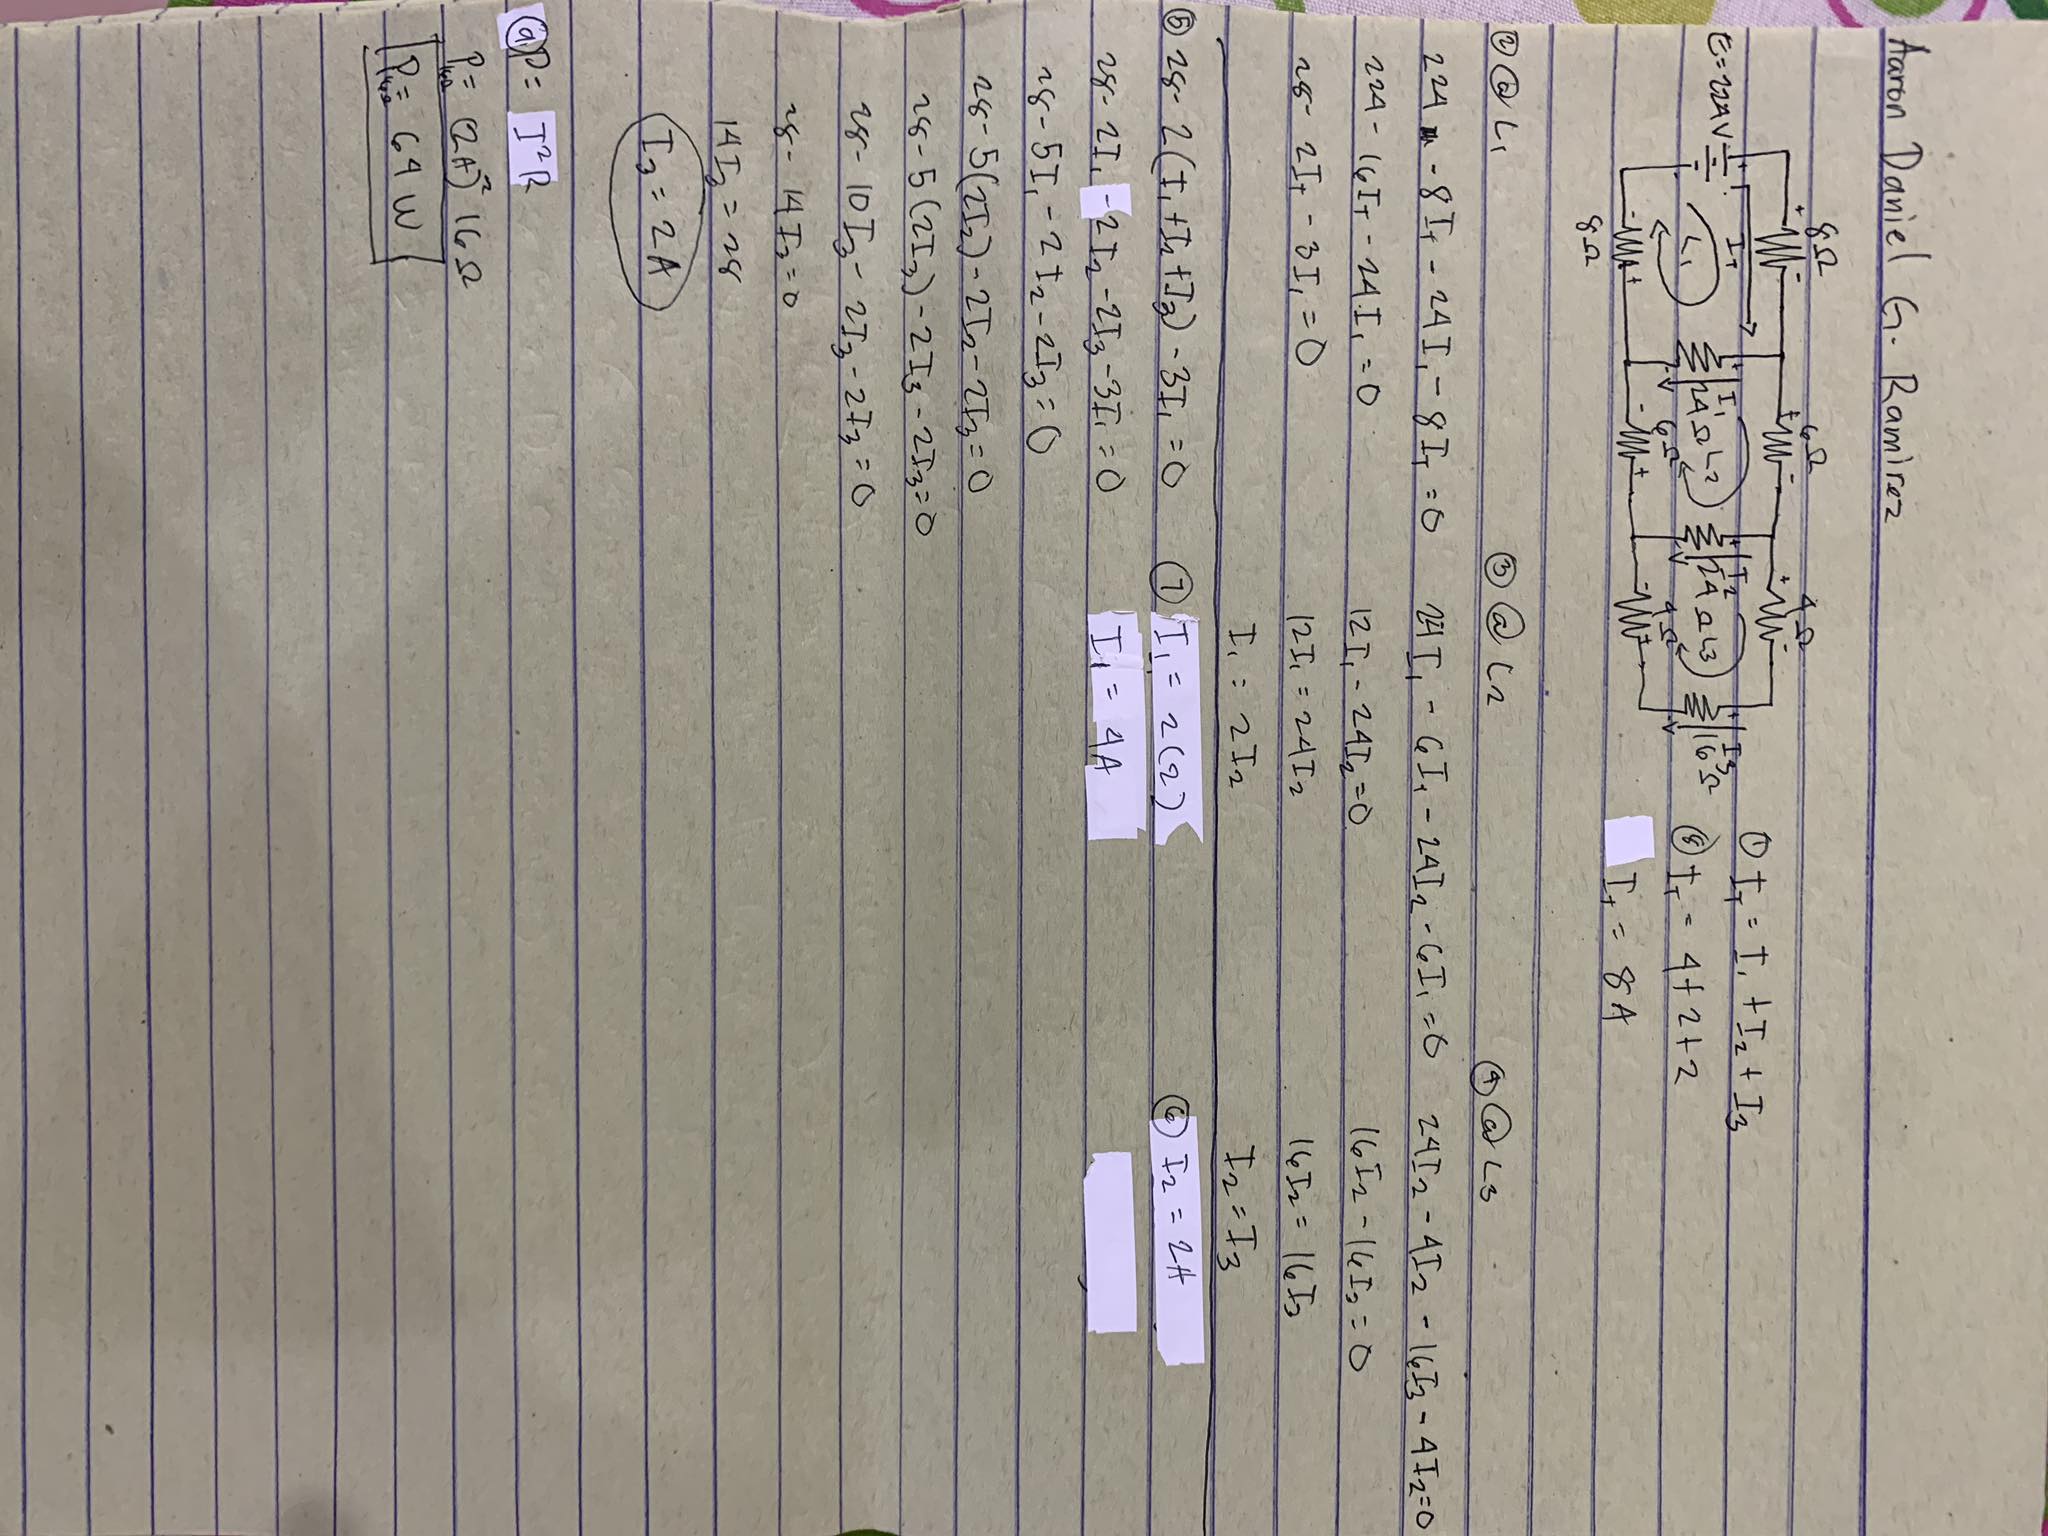 Aaron Daniel G. Ramirez
8Ω
6Ω
4Ω
E=224V
+ -
+ -
+ -
I_T
L1
I1
24Ω
L2
I2
24Ω
L3
I3
16Ω
- +
8Ω
6Ω
- +
4Ω
- +
① I_T = I1 + I2 + I3
⑧ I_T = 4+2+2
I_T = 8A
② @ L1
224 - 8I_T - 24I1 - 8I_T = 0
224 - 16I_T - 24I1 = 0
28 - 2I_T - 3I1 = 0
③ @ L2
24I1 - 6I1 - 24I2 - 6I1 = 0
12I1 - 24I2 = 0
12I1 = 24I2
I1 = 2I2
④ @ L3
24I2 - 4I2 - 16I3 - 4I2 = 0
16I2 - 16I3 = 0
16I2 = 16I3
I2 = I3
⑤ 28 - 2(I1+I2+I3) - 3I1 = 0
28 - 2I1 - 2I2 - 2I3 - 3I1 = 0
28 - 5I1 - 2I2 - 2I3 = 0
28 - 5(2I2) - 2I2 - 2I3 = 0
28 - 5(2I3) - 2I3 - 2I3 = 0
28 - 10I3 - 2I3 - 2I3 = 0
28 - 14I3 = 0
14I3 = 28
I3 = 2A
⑦ I1 = 2(2)
I1 = 4A
⑥ I2 = 2A
⑨ P = I²R
P16Ω = (2A)² 16Ω
P16Ω = 64 W